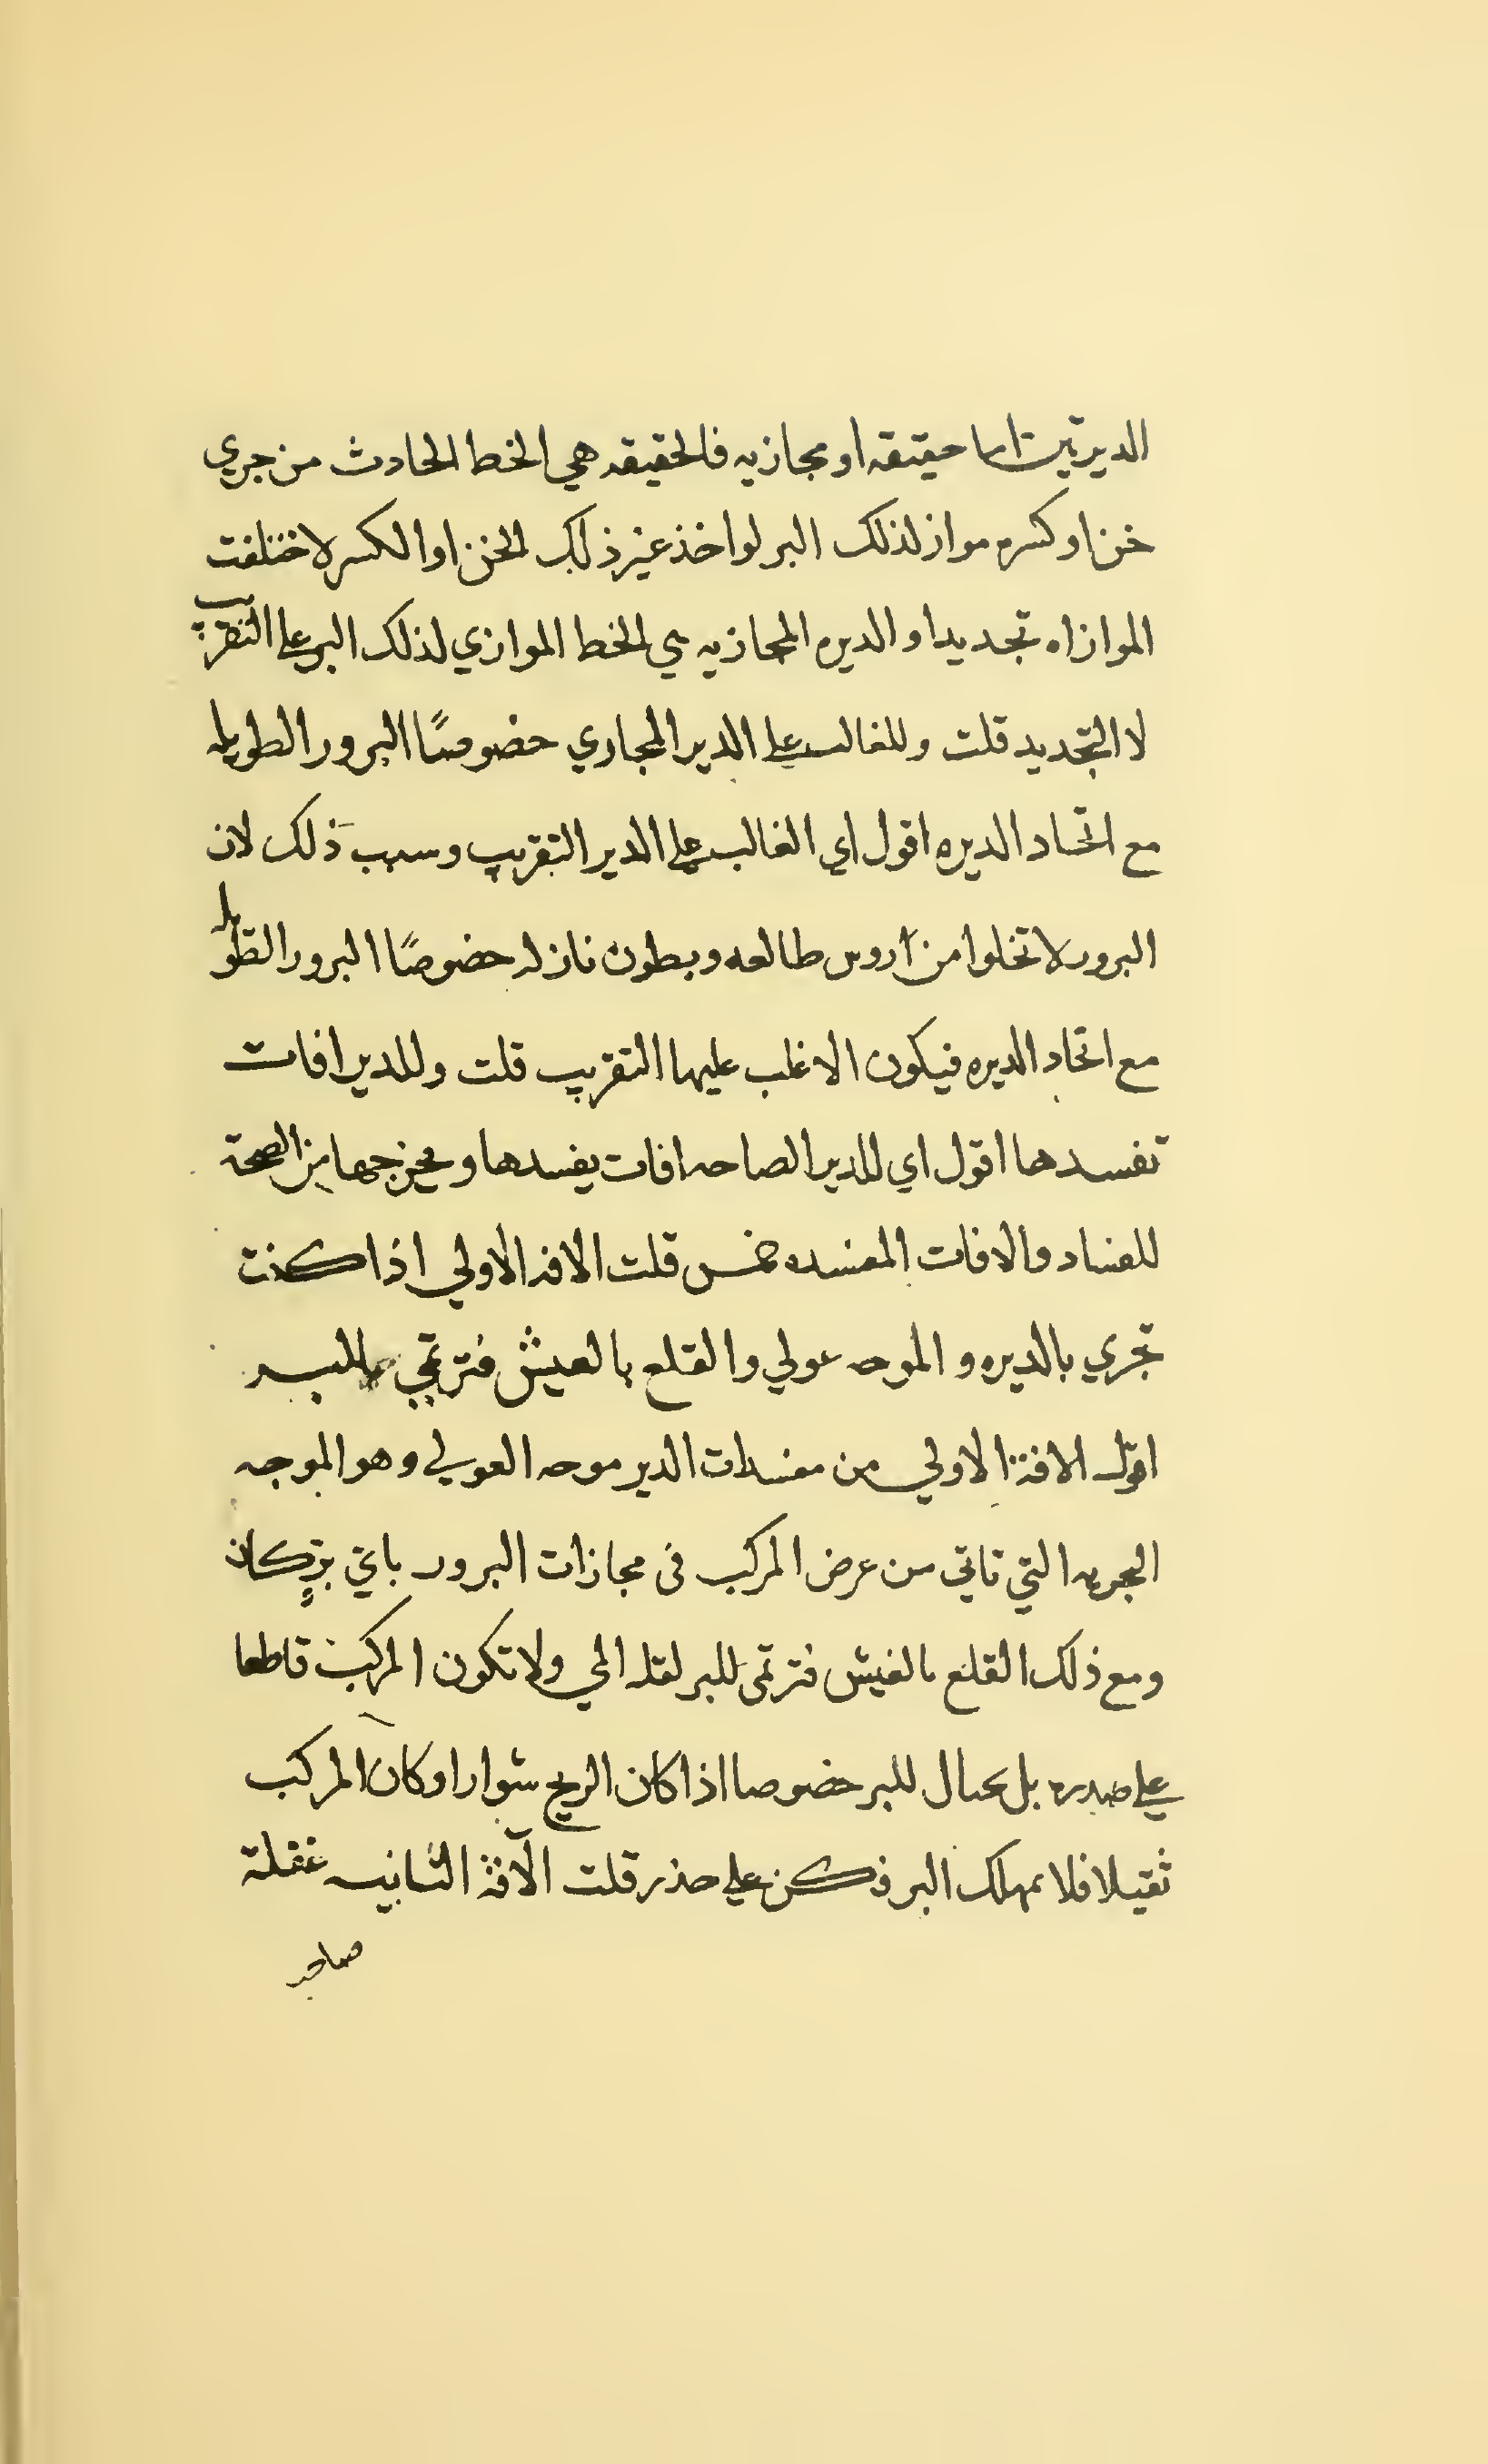 الديرتين اما حقيقه او مجازيه فالحقيقه هي الخط الحادث من جري
خن او كسره مواز لذلك البر لو اخذ غير ذلك الخن او الكسر لاختلفت
الموازاه تجديدا والديره المجازيه هي الخط الموازي لذلك البر علي التقريب
لا التجديد قلت وللغالب علي الدير المجازي خضوصًا البرور الطويله
مع اتحاد الديره اقول اي الغالب علي الدير التقريب وسبب ذلك لان
البرور لا تخلوا من أروس طالعه وبطون نازله خضوصًا البرور الطويله
مع اتحاد الديره فيكون الاغلب عليها التقريب قلت وللدير افات
تفسدها اقول اي للدير الصاحه افات يفسدها ويخرجها من الصحة
للفساد والافات المفسده خمس قلت الافه الاولي اذا كنت
تجري بالديره والموجه عولي والقلع بالغيش فترتمي للبر
اقول الافة الاولي من مفسدات الدير موجه العولي وهو الموجه
البحريه التي تاتي من عرض المركب فى مجازات البرور باي بر كان
ومع ذلك القلع بالغيش فترتمى للبر لقله المي ولا تكون المركب قاطعا
علي صدره بل عيال للبر خضوصا اذا كان الريح شوارا وكان المركب
ثقيلا فلا يمهلك البر فكن علي حذر قلت الآفة الثانيه غفلة
صاحب